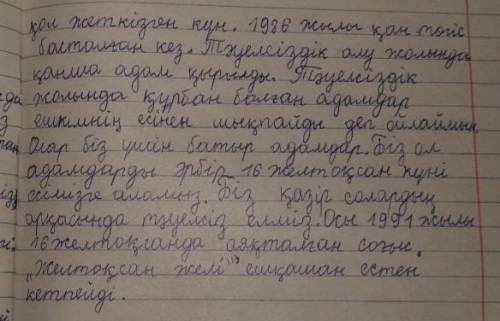 қол жеткізген күн. 1986 жылы қан төгіс
басталған кез. Тәуелсіздік алу жолында
қанша адам қырылды. Тәуелсіздік
жолында құрбан болған адамдар
ешкімнің есінен шықпайды деп ойлаймын
Олар біз үшін батыр адамдар. Біз ол
адамдарды әрбір 16 желтоқсан күні
есімізге аламыз. Біз қазір солардың
арқасында тәуелсіз елміз. Осы 1991 жылы
16 желтоқсанда аяқталған соғыс.
„Желтоқсан желі" ешқашан естен
кетпейді.